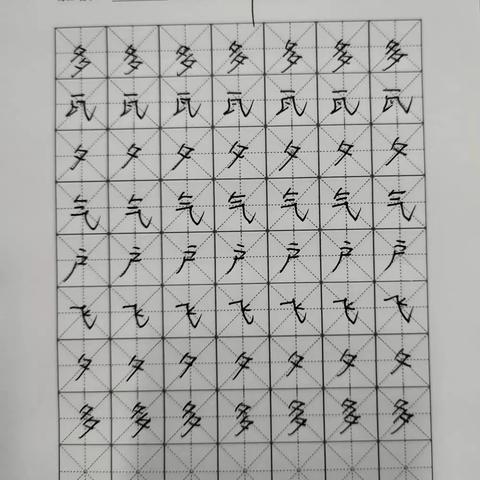 多多多多多多多
瓦瓦瓦瓦瓦瓦瓦
夕夕夕夕夕夕夕
气气气气气气气
户户户户户户户
飞飞飞飞飞飞飞
夕夕夕夕夕夕夕
多多多多多多多